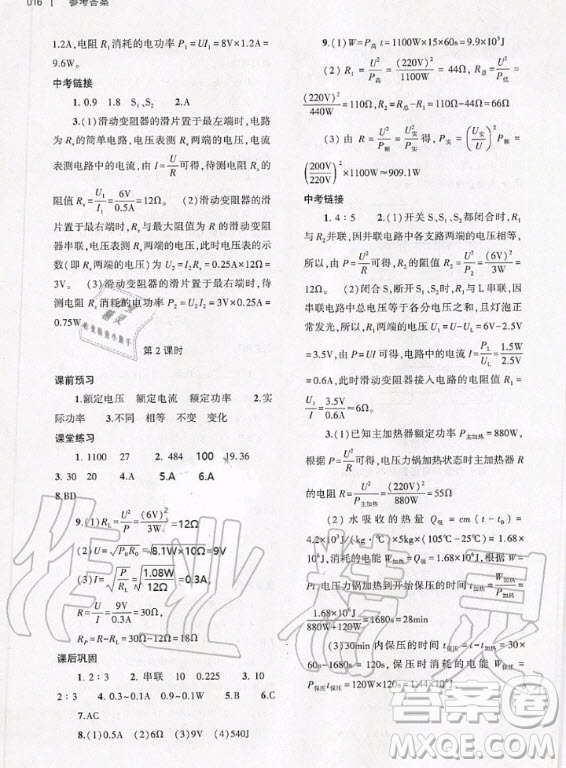 016 | 参考答案
1.2A,电阻 R₁ 消耗的电功率 P₁ = UI₁ = 8V×1.2A =
9.6W。
中考链接
1. 0.9 1.8 S₁、S₂ 2.A
3.(1)滑动变阻器的滑片置于最左端时,电路
为 Rₓ 的简单电路,电压表测 Rₓ 两端的电压,电流
表测电路中的电流,由 I = U/R 可得,待测电阻 Rₓ 的
阻值 Rₓ = U₁/I₁ = 6V/0.5A = 12Ω。 (2)滑动变阻器的滑
片置于最右端时,Rₓ 与最大阻值的滑动变阻器
串联,电压表测 Rₓ 两端的电压,则电压表的示
数(即 Rₓ 两端的电压)为 U₂ = I₂Rₓ = 0.25A×12Ω =
3V。 (3)滑动变阻器的滑片置于最右端时,待测
电阻 Rₓ 消耗的电功率 P₂ = U₂I₂ = 3V×0.25A =
0.75W。
第 2 课时
课前预习
1.额定电压 额定电流 额定功率 2.实
际功率 3.不同 相等 不变 变化
课堂练习
1. 1100 27 2. 484 100 19.
3. 30 20 4. A 5.A 6.A
8.BD
9.(1)R_L = U²/P = (6V)²/3W = 12Ω
(2)U = √(P₀R₀) = √(8.1W×10Ω) = 9V
(3)I = √(P/R_L) = √(1.08W/12Ω) = 0.3A,
R = U/I = 9V/0.3A = 30Ω,
R_P = R − R_L = 30Ω − 12Ω = 18Ω
课后巩固
1. 2∶3 2. 串联 10 0.225 3. 10
2∶3 4. 0.3~0.1A 0.9~0.1W 5.A 6.C
7.AC
8.(1)0.5A (2)6V (3)9V (4)540J
9.(1)W = P高 t = 1100W×15×60s = 9.9×10⁵J
(2)R₁ = U²/P高 = (220V)²/1100W = 44Ω,R总 = U²/P低 =
(220V)²/440W = 110Ω,R₂ = R总 − R₁ = 110Ω − 44Ω = 66Ω
(3)由 R = U²/P 可得,P实 = (U实/U)² P额 =
(200V/220V)² ×1100W ≈ 909.1W
中考链接
1. 4∶5 2.(1)开关 S、S₁、S₂ 都闭合时,R₁
与 R₂ 并联,因并联电路中各支路两端的电压相等,
所以,由 P = UI = U²/R 可得,R₂ 的阻值 R₂ = U²/P₂ = (6V)²/3W =
12Ω。 (2)闭合 S,断开 S₁、S₂ 时,R₁ 与 L 串联,因
串联电路中总电压等于各分电压之和,且灯泡正
常发光,所以,R₁ 两端的电压 U₁ = U − U_L = 6V − 2.5V =
3.5V,由 P = UI 可得,电路中的电流 I = P_L/U_L = 1.5W/2.5V =
0.6A,此时滑动变阻器接入电路的电阻值 R₁ =
U₁/I = 3.5V/0.6A ≈ 5.8Ω。
3.(1)已知主加热器额定功率 P主加热 = 880W,
根据 P = U²/R 可得,电压力锅加热状态时主加热器的
电阻 R = U²/P主加热 = (220V)²/880W = 55Ω
(2)水吸收的热量 Q吸 = cm(t − t₀) =
4.2×10³J/(kg·℃)×5kg×(105℃−25℃) = 1.68×
10⁶J,消耗的电能 W = Q吸 = 1.68×10⁶J
从开始加热到开始保压的时间 t加热 = W/P加热 =
1.68×10⁶J/(880W+120W) = 1680s = 28min
(3)30min 内保压的时间 t保压 = t − t加热 = 30×
60s − 1680s = 120s,保压过程消耗的电能 W保压 =
P保压t保压 = 120W×120s = 1.44×10⁴J
作业精灵
答案圈
MXQE.COM